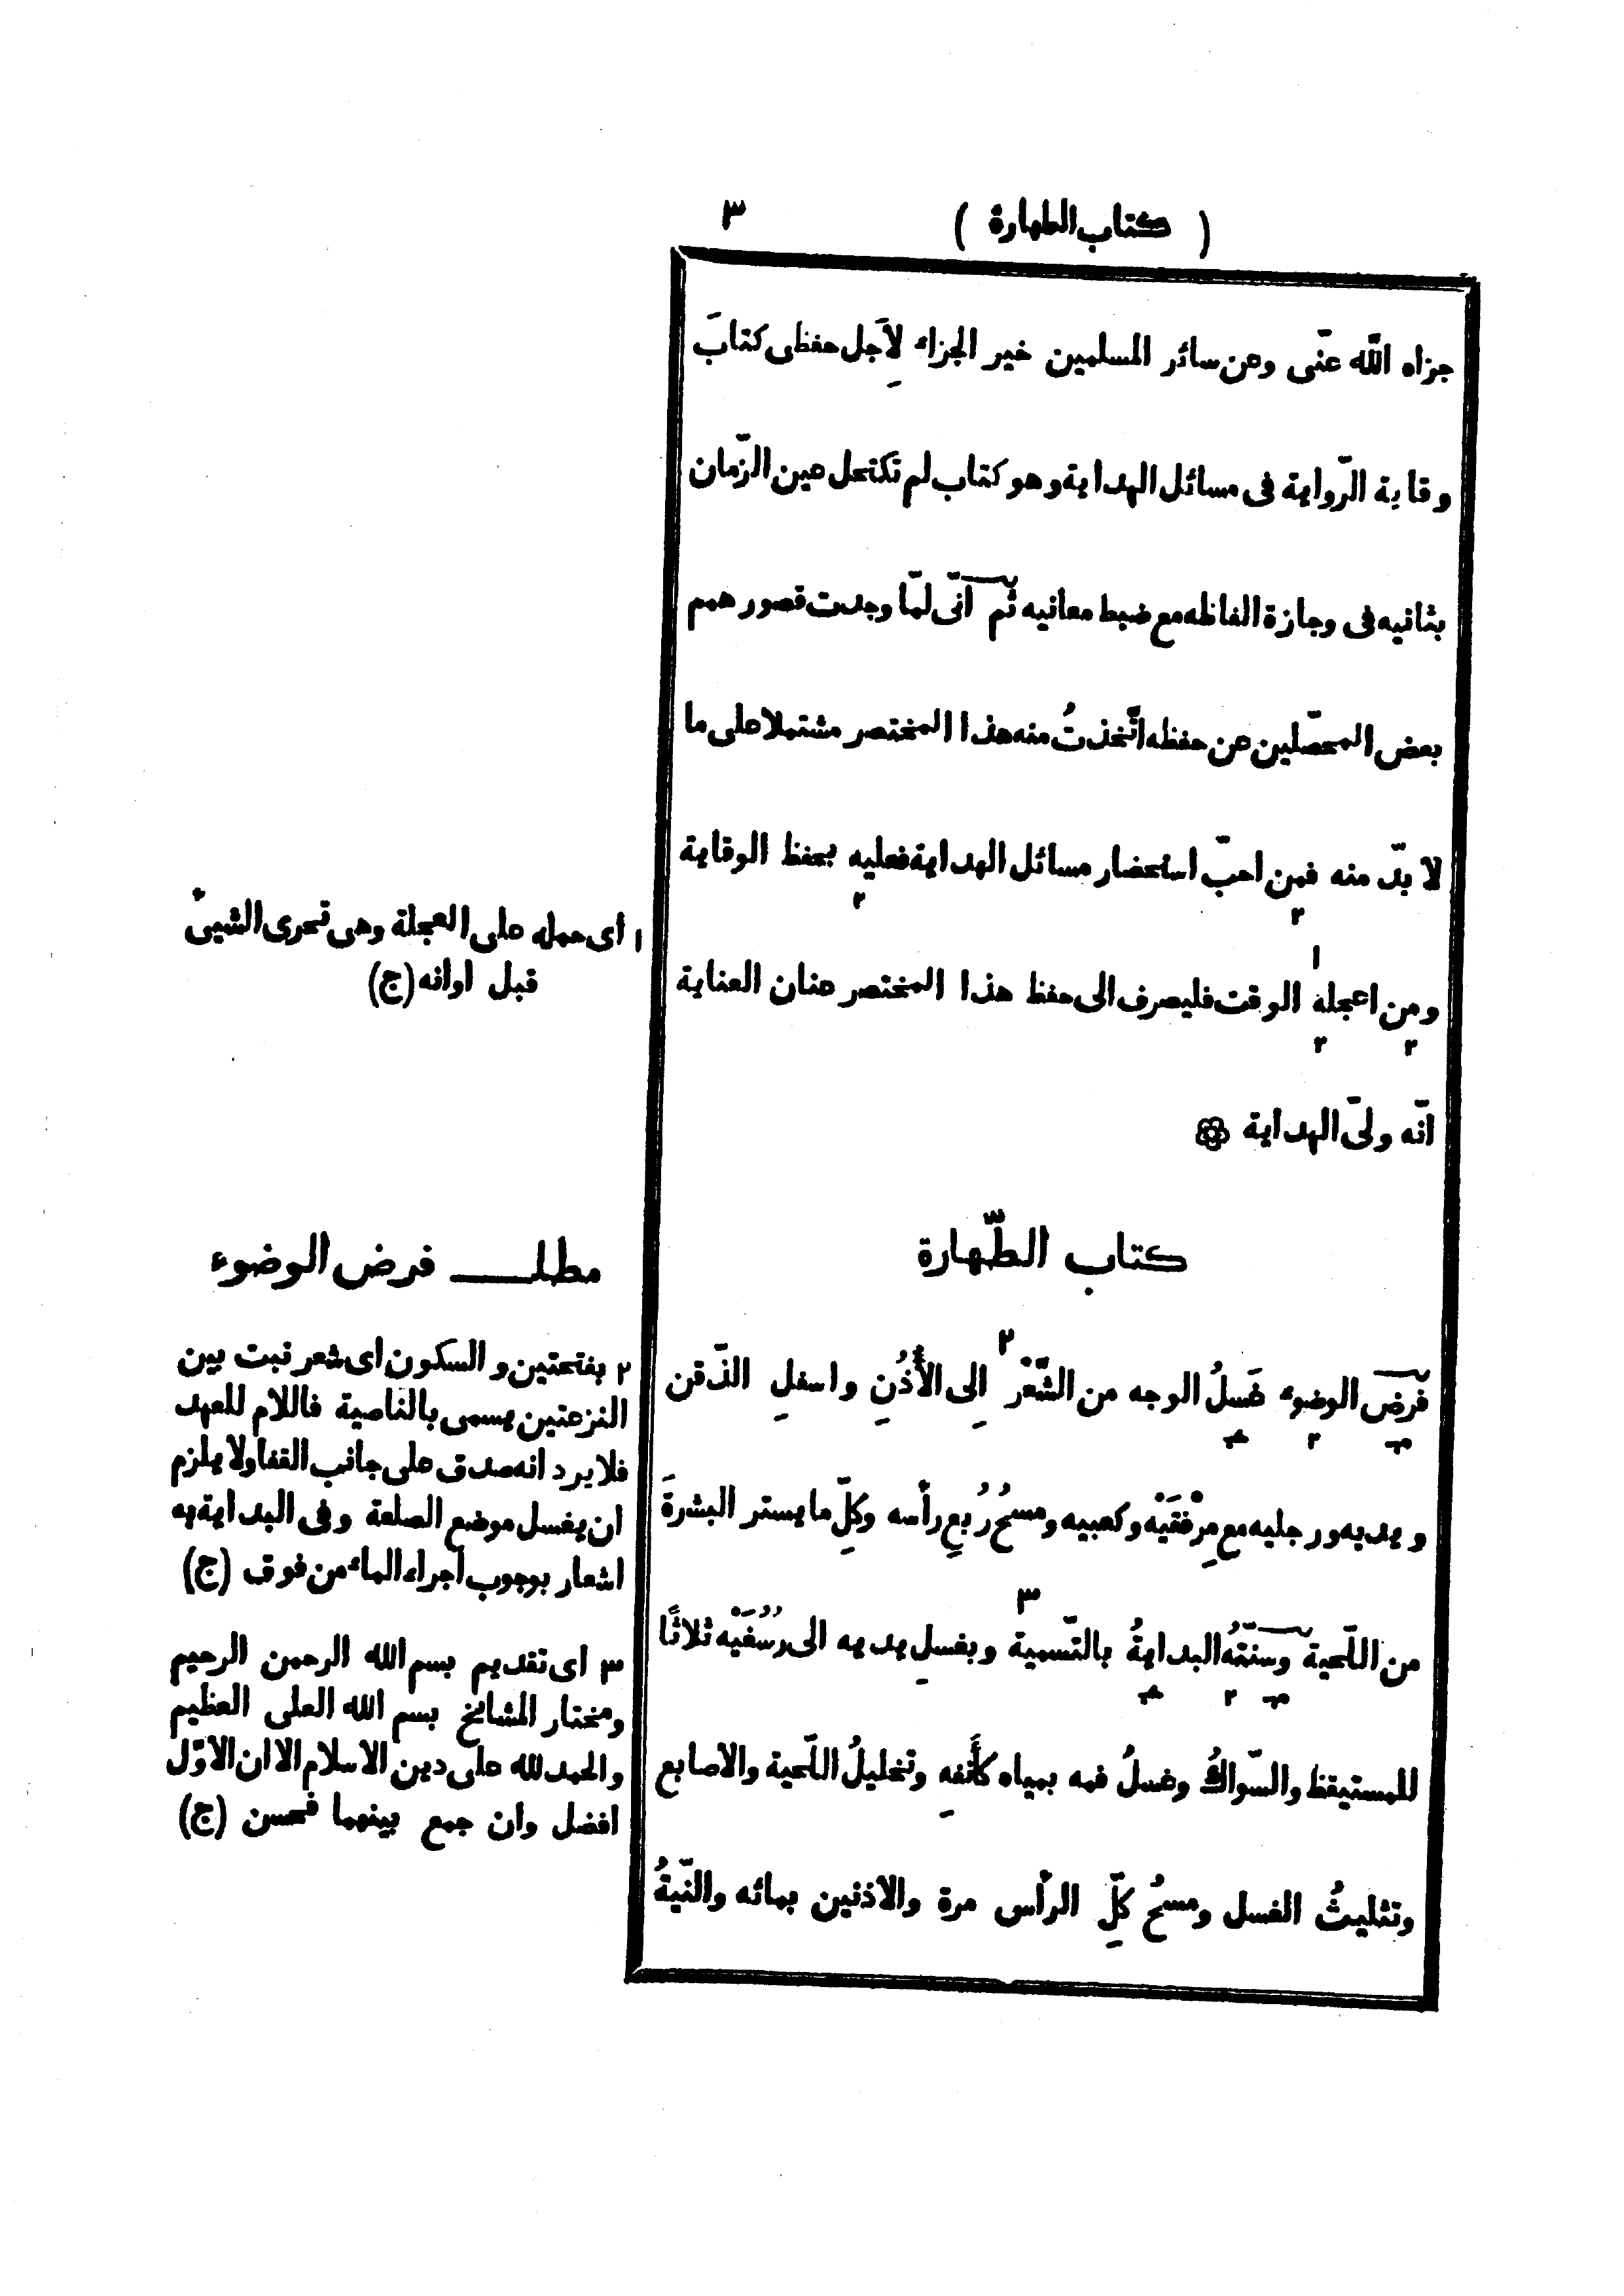 ( كتاب الطهارة ) ٣
جزاه اللّه عنّى وعن سائر المسلمين خير الجزاء لِاَجل حفظى كتابَ
وقاية الرّواية فى مسائل الهداية وهو كتاب لم تكتحل عين الزّمان
بثانيه فى وجازة الفاظه مع ضبط معانيه ثم انّى لمّا وجدت قصور همم
بعض المحصّلين عن حفظه اتّخذتُ منه هذا المختصر مشتملا على ما
لا بدّ منه فمن احبّ استحضار مسائل الهداية فعليه بحفظ الوقاية
٢ ٢
١
ومن اعجله الوقت فليصرف الى حفظ هذا المختصر عنان العناية
٢ ٢
انّه ولىّ الهداية
كتاب الطّهارة
٢
فرض الوضوء غَسلُ الوجه من الشَّعْرِ الى الأُذُنِ واسفلِ الذّقن
ويديه ورجليه مع مِرْفَقَيْه وكعبيه ومسحُ رُبعِ رأسه وكلِّ ما يستر البشرةَ
٣
من اللّحية وسنّتهُ البدايةُ بالتّسمية وبغسلِ يديه الى رُسُغَيْه ثلاثًا
للمستيقظ والسّواكُ وغسلُ فمه بمياه كأَنفهِ وتخليلُ اللّحية والاصابع
وتثليثُ الغسل ومسحُ كلِّ الرأس مرة والاذنين بمائه والنّيةُ
١ اى حمله على العجلة وهى تحرى الشيىء
قبل اوانه (ج)
مطلـــ فرض الوضوء
٢ بفتحتين و السكون اى شعر نبت بين
النزعتين يسمى بالناصية فاللام للعهد
فلا يرد انه صدق على جانب القفا ولا يلزم
ان يغسل موضع الصلعة وفى البداية به
اشعار بوجوب اجراء الماء من فوق (ج)
٣ اى تقديم بسم الله الرحمن الرحيم
ومختار المشايخ بسم الله العلى العظيم
والحمد لله على دين الاسلام الا ان الاوّل
افضل وان جمع بينهما فحسن (ج)